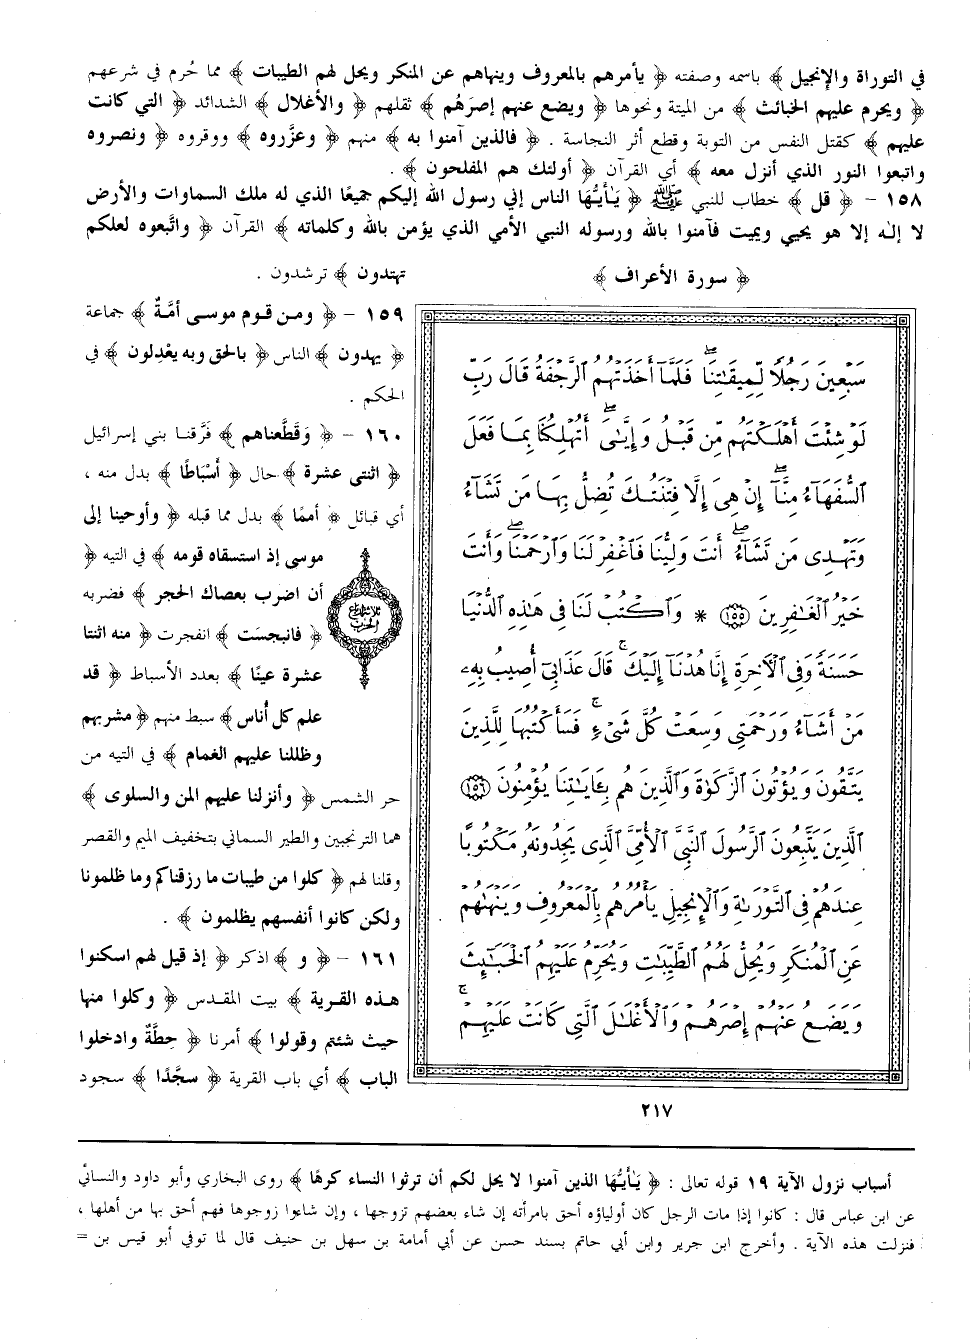 في التوراة والإنجيل ﴾ باسمه وصفته ﴿ يأمرهم بالمعروف وينهاهم عن المنكر ويحل لهم الطيبات ﴾ مما حُرم في شرعهم
﴿ ويحرم عليهم الخبائث ﴾ من الميتة ونحوها ﴿ ويضع عنهم إصرَهُم ﴾ ثقلهم ﴿ والأغلال ﴾ الشدائد ﴿ التي كانت
عليهم ﴾ كقتل النفس من التوبة وقطع أثر النجاسة . ﴿ فالذين آمنوا به ﴾ منهم ﴿ وعزَّروه ﴾ ووقروه ﴿ ونصروه
واتبعوا النور الذي أنزل معه ﴾ أي القرآن ﴿ أولئك هم المفلحون ﴾ .
١٥٨ - ﴿ قل ﴾ خطاب للنبي ﷺ ﴿ يَـٰأيُّهَا الناس إني رسول الله إليكم جميعًا الذي له ملك السماوات والأرض
لا إلـٰه إلا هو يحيي ويميت فآمنوا بالله ورسوله النبي الأمي الذي يؤمن بالله وكلماته ﴾ القرآن ﴿ واتَّبعوه لعلكم
تهتدون ﴾ ترشدون .
١٥٩ - ﴿ ومن قوم موسى أمَّةٌ ﴾ جماعة
﴿ يهدون ﴾ الناس ﴿ بالحق وبه يعْدِلون ﴾ في
الحكم .
١٦٠ - ﴿ وَقَطَّعناهم ﴾ فَرَّقنا بني إسرائيل
﴿ اثنتى عشرة ﴾ حال ﴿ أَسْبَاطًا ﴾ بدل منه ،
أي قبائل ﴿ أممًا ﴾ بدل مما قبله ﴿ وأوحينا إلى
موسى إذ استسقاه قومه ﴾ في التيه ﴿
أن اضرب بعصاك الحجر ﴾ فضربه
﴿ فانبجسَت ﴾ انفجرت ﴿ منه اثنتا
عشرة عينًا ﴾ بعدد الأسباط ﴿ قد
علم كل أُناس ﴾ سبط منهم ﴿ مشربهم
وظللنا عليهم الغمام ﴾ في التيه من
حر الشمس ﴿ وأنزلنا عليهم المن والسلوى ﴾
هما الترنجبين والطير السماني بتخفيف الميم والقصر
وقلنا لهم ﴿ كلوا من طيبات ما رزقناكم وما ظلمونا
ولكن كانوا أنفسهم يظلمون ﴾ .
١٦١ - ﴿ و ﴾ اذكر ﴿ إذ قيل لهم اسكنوا
هذه القرية ﴾ بيت المقدس ﴿ وكلوا منها
حيث شئتم وقولوا ﴾ أمرنا ﴿ حِطَّةٌ وادخلوا
الباب ﴾ أي باب القرية ﴿ سجَّدًا ﴾ سجود
ثلاثة أرباع
الحزب
﴿ سورة الأعراف ﴾
سَبْعِينَ رَجُلًا لِّمِيقَـٰتِنَا ۖ فَلَمَّآ أَخَذَتْهُمُ ٱلرَّجْفَةُ قَالَ رَبِّ
لَوْ شِئْتَ أَهْلَكْتَهُم مِّن قَبْلُ وَإِيَّـٰىَ ۖ أَتُهْلِكُنَا بِمَا فَعَلَ
ٱلسُّفَهَآءُ مِنَّآ ۖ إِنْ هِىَ إِلَّا فِتْنَتُكَ تُضِلُّ بِهَا مَن تَشَآءُ
وَتَهْدِى مَن تَشَآءُ ۖ أَنتَ وَلِيُّنَا فَٱغْفِرْ لَنَا وَٱرْحَمْنَا ۖ وَأَنتَ
خَيْرُ ٱلْغَـٰفِرِينَ ﴿١٥٥﴾ * وَٱكْتُبْ لَنَا فِى هَـٰذِهِ ٱلدُّنْيَا
حَسَنَةً وَفِى ٱلْـَٔاخِرَةِ إِنَّا هُدْنَآ إِلَيْكَ ۚ قَالَ عَذَابِىٓ أُصِيبُ بِهِۦ
مَنْ أَشَآءُ ۖ وَرَحْمَتِى وَسِعَتْ كُلَّ شَىْءٍ ۚ فَسَأَكْتُبُهَا لِلَّذِينَ
يَتَّقُونَ وَيُؤْتُونَ ٱلزَّكَوٰةَ وَٱلَّذِينَ هُم بِـَٔايَـٰتِنَا يُؤْمِنُونَ ﴿١٥٦﴾
ٱلَّذِينَ يَتَّبِعُونَ ٱلرَّسُولَ ٱلنَّبِىَّ ٱلْأُمِّىَّ ٱلَّذِى يَجِدُونَهُۥ مَكْتُوبًا
عِندَهُمْ فِى ٱلتَّوْرَىٰةِ وَٱلْإِنجِيلِ يَأْمُرُهُم بِٱلْمَعْرُوفِ وَيَنْهَىٰهُمْ
عَنِ ٱلْمُنكَرِ وَيُحِلُّ لَهُمُ ٱلطَّيِّبَـٰتِ وَيُحَرِّمُ عَلَيْهِمُ ٱلْخَبَـٰٓئِثَ
وَيَضَعُ عَنْهُمْ إِصْرَهُمْ وَٱلْأَغْلَـٰلَ ٱلَّتِى كَانَتْ عَلَيْهِمْ ۚ
٢١٧
أسباب نزول الآية ١٩ قوله تعالى : ﴿ يَـٰأيُّهَا الذين آمنوا لا يحل لكم أن ترثوا النساء كرهًا ﴾ روى البخاري وأبو داود والنسائي
عن ابن عباس قال : كانوا إذا مات الرجل كان أولياؤه أحق بامرأته إن شاء بعضهم تزوجها ، وإن شاءوا زوجوها فهم أحق بها من أهلها ،
فنزلت هذه الآية . وأخرج ابن جرير وابن أبي حاتم بسند حسن عن أبي أمامة بن سهل بن حنيف قال لما توفي أبو قيس بن =